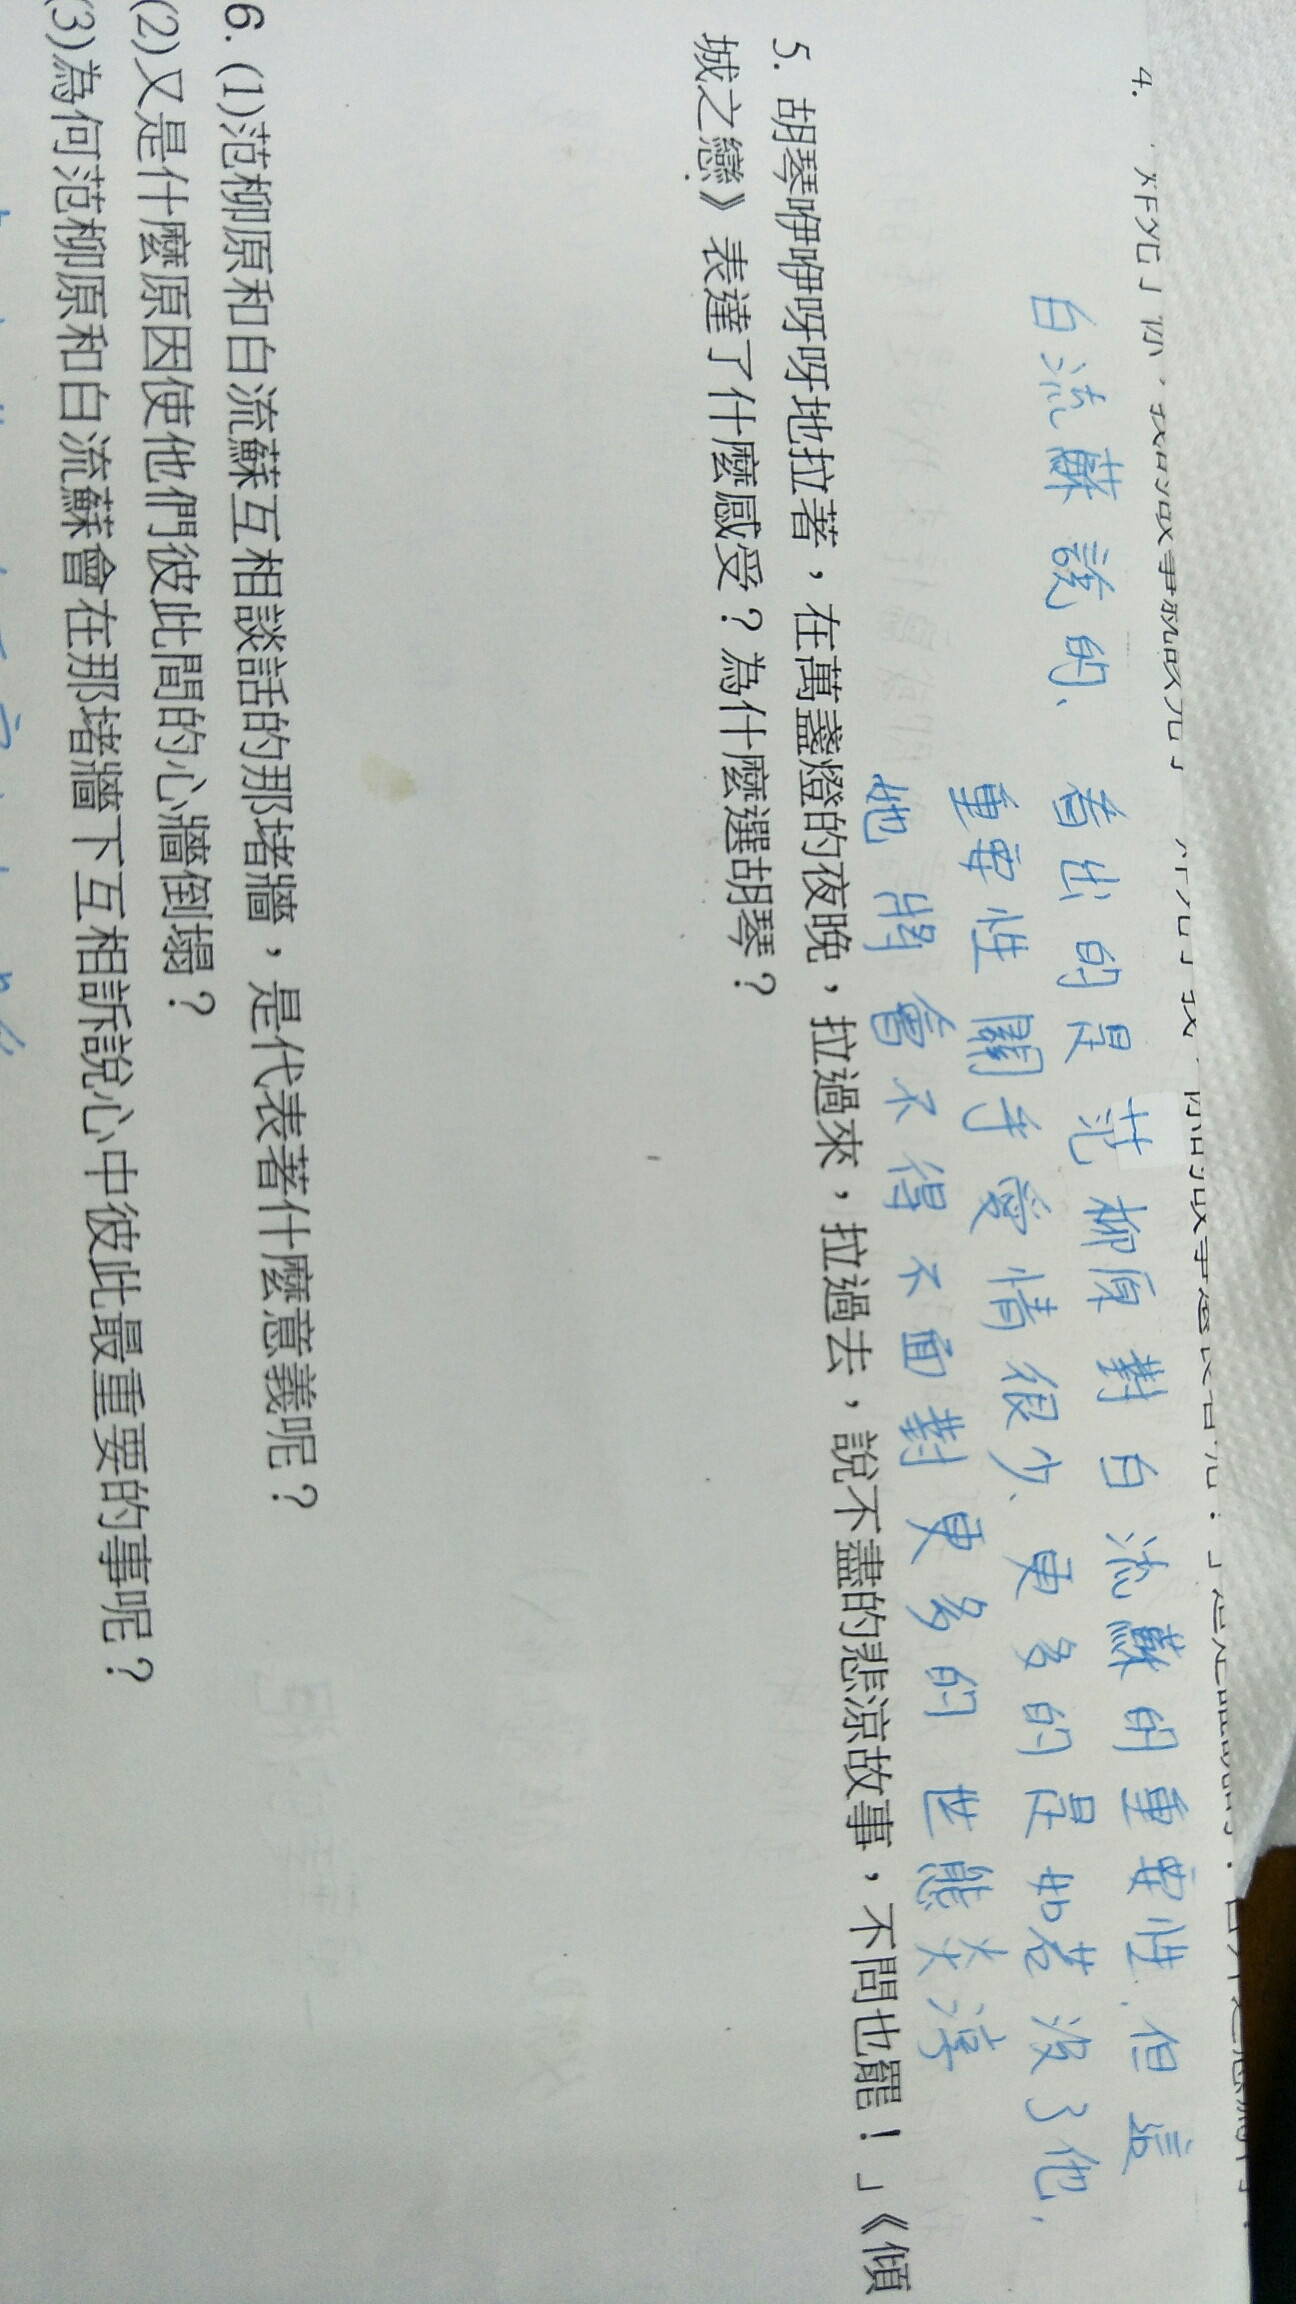 4.
白流蘇說的、看出的是范柳原對白流蘇的重要性、但這
重要性關乎愛情很少、更多的是如若沒了他、
她將會不得不面對更多的世態炎涼
5. 胡琴咿咿呀呀地拉著,在萬盞燈的夜晚,拉過來,拉過去,說不盡的悲涼故事,不問也罷!」《傾
城之戀》表達了什麼感受?為什麼選胡琴?
6. (1)范柳原和白流蘇互相談話的那堵牆,是代表著什麼意義呢?
(2)又是什麼原因使他們彼此間的心牆倒塌?
(3)為何范柳原和白流蘇會在那堵牆下互相訴說心中彼此最重要的事呢?